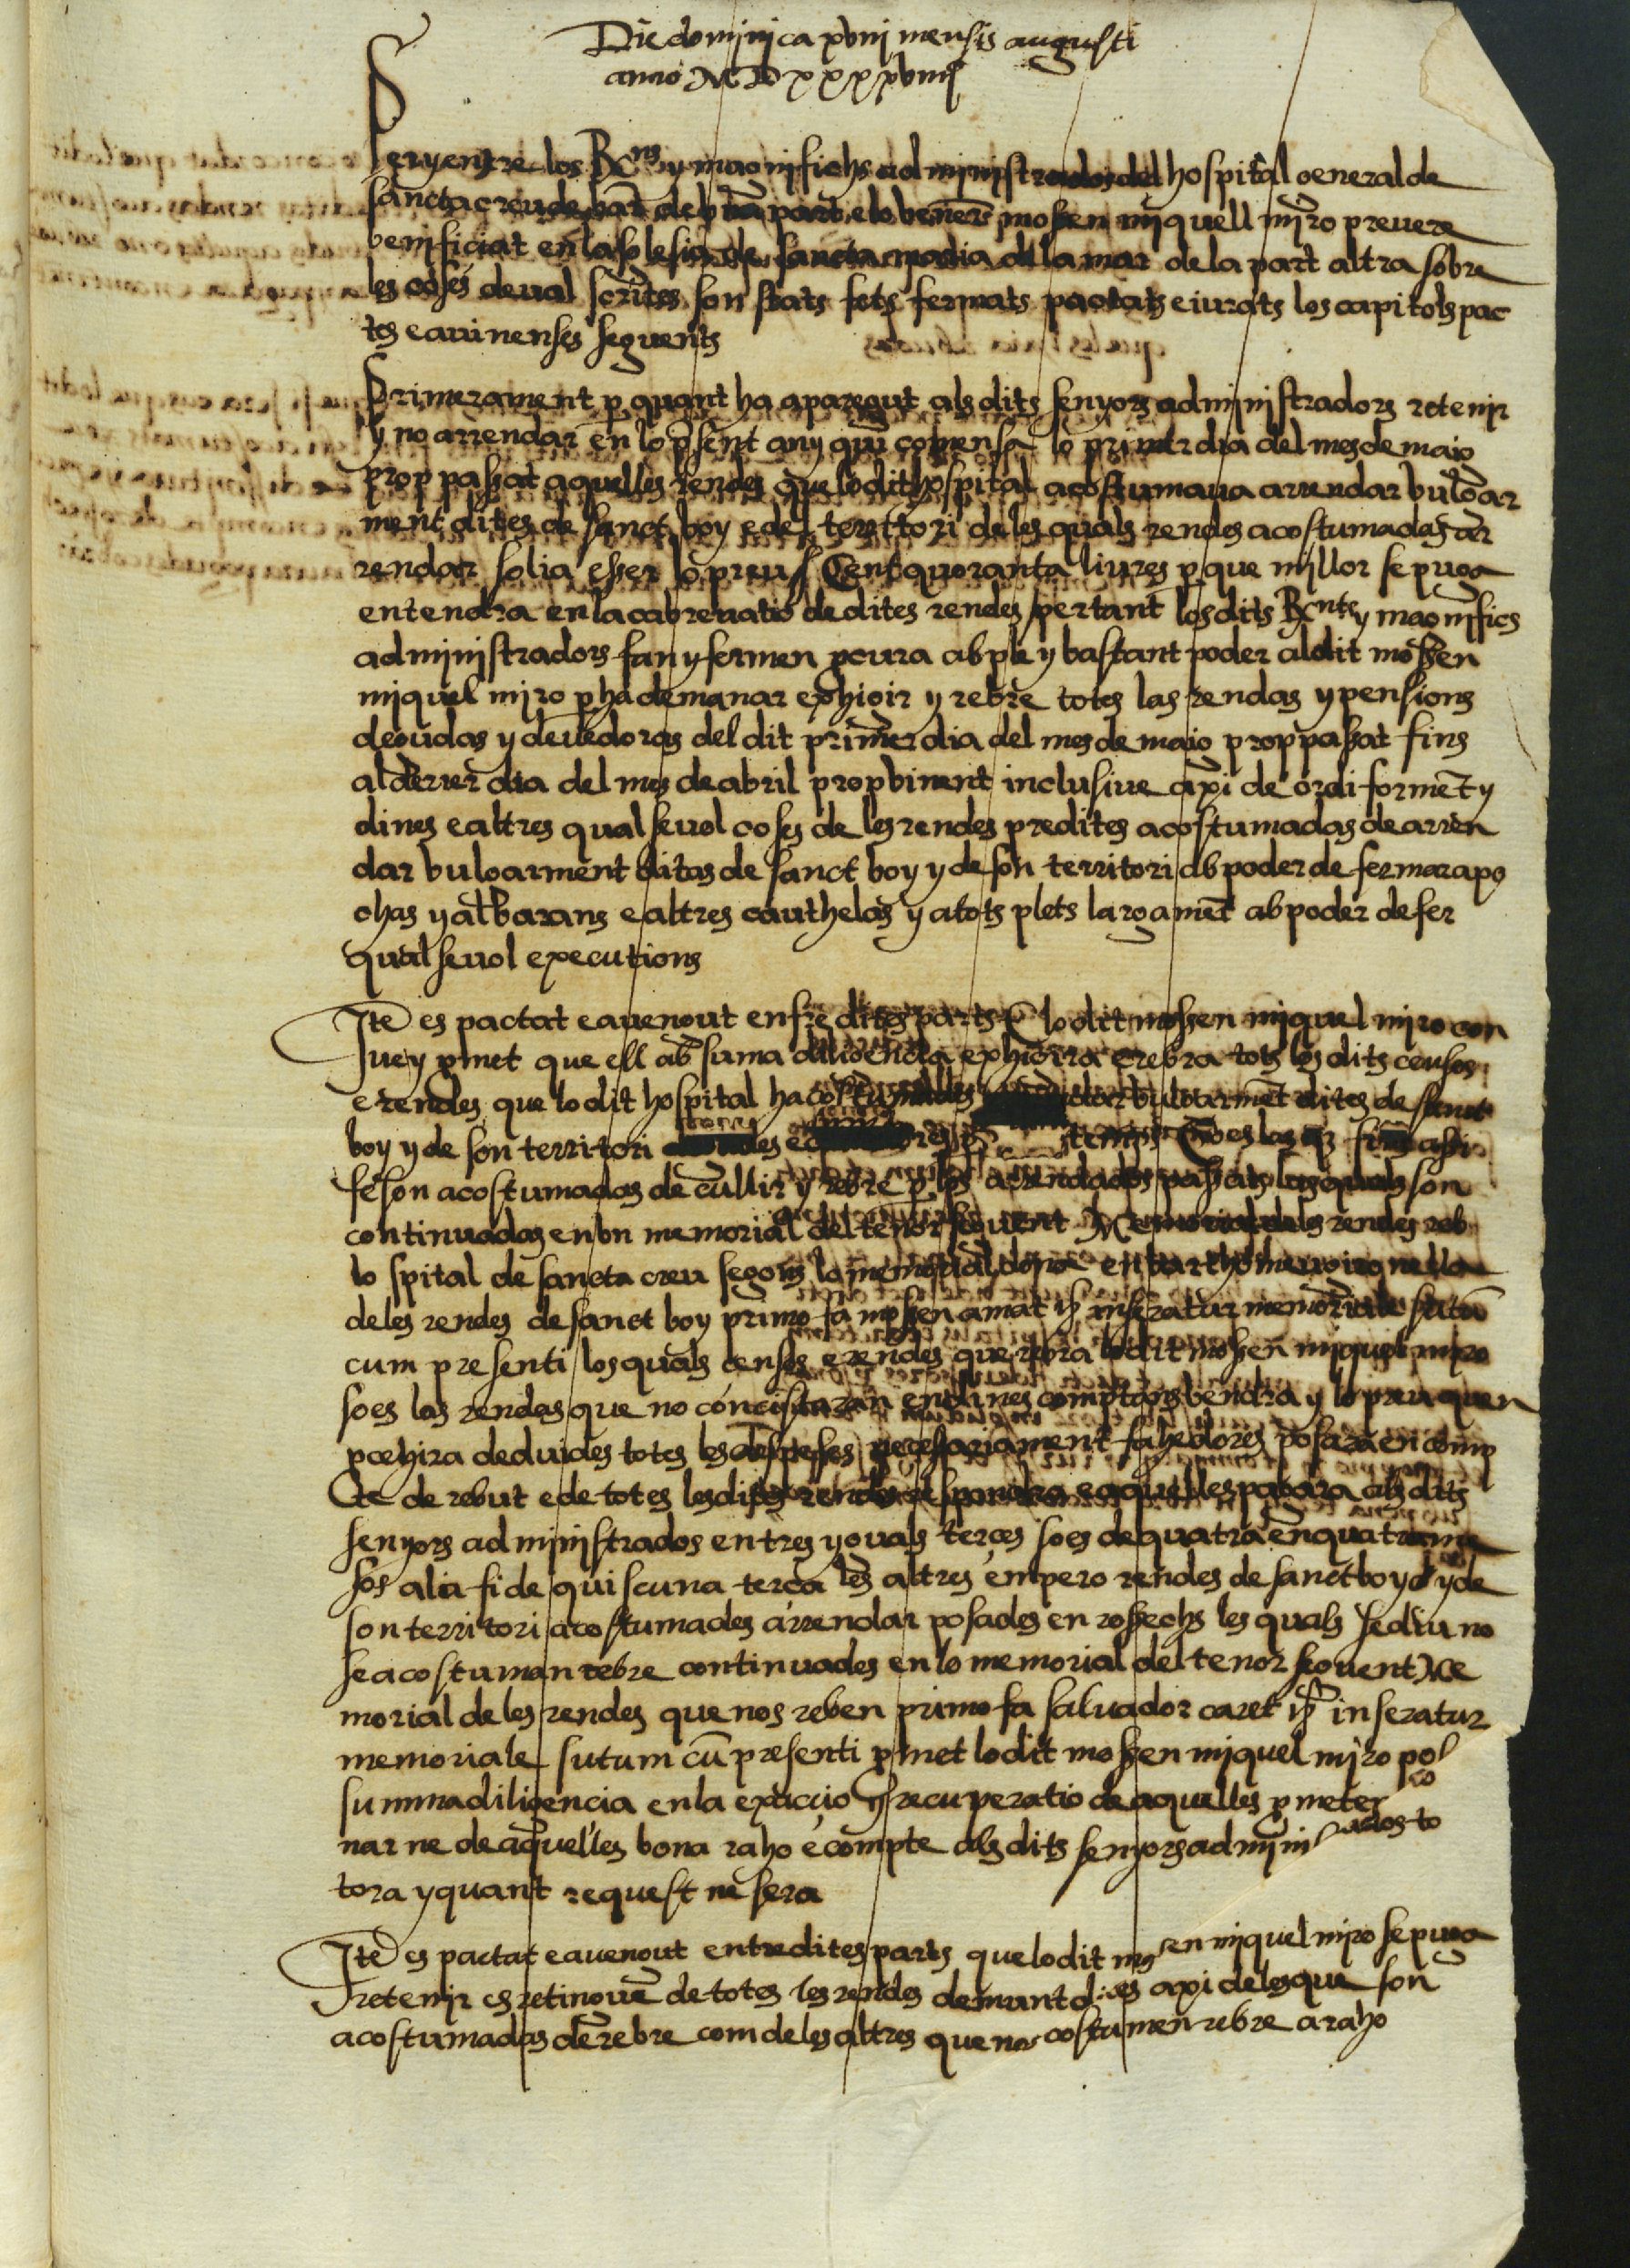 Die dominica xviii mensis augusti
anno MDxxxxviiii
Per y entre los Rents y magnifichs administrados del hospital general de
sancta creu de bar.na de una part e lo venerle mossen miquell miro prevere
benificiat en la sglesia de sancta maria de la mar de la part altra sobre
les coses deval scrites son stats fets fermats pactats e iurats los capitols pac
tes e avinenses seguents
Primerament p quant ha aparegut als dits senyors administradors retenir
y no arrendar en lo pnt any qui comensa lo primer dia del mes de maig
prop passat aquelles rendes que lo dit hospital acostumava arrendar vulgar
ment dites de sanct boy e del territori de les quals rendes acostumadas ar
rendar solia esser lo preu Cent quoranta liures p que millor se puga
entendra en la cabrevatio de dites rendes pertant los dits Rents y magnifics
administradors fan y fermen pcura ab ple y bastant poder al dit mossen
miquel miro p ha demanar exhigir y rebre totes las rendas y pensions
degudas y devedoras del dit primer dia del mes de maig prop passat fins
al derrer dia del mes de abril prop vinent inclusive axi de ordi forment y
dines e altres qual sevol coses de les rendes predites acostumadas de arren
dar vulgarment ditas de sanct boy y de son territori ab poder de fermar apo
chas y albarans e altres cauthelas y a tots plets largament ab poder de fer
qual sevol executions
Ite es pactat e avengut enfre dites parts q lo dit mossen miquel miro con
ve y pmet que ell ab suma diligencia exhigira e rebra tots los dits censos
e rendes que lo dit hospital ha acostumades vulgarment dites de sanct
boy y de son territori temps ço es las
se son acostumadas de cullir y rebre p los arrendados passats las quals son
continuadas en un memorial del tenor seguent Memorial de les rendes reb
lo spital de sancta creu segons lo memorial dona en barthomeu gironella
de les rendes de sanct boy primo fa mossen amat inseratur memoriale sutum
cum presenti los quals censos e rendes que rebra lo dit mossen miquel miro
soes las rendas que no concistaran en dines comptans vendra y lo preu quen
pcehira deduides totes les despeses necessariament fahedores posara en comp
te de rebut e de totes les dites rendes respondra e aquelles pagara als dits
senyors administrados en tres yguals terces soes de quatra en quatra me
sos a la fi de quiscuna terca les altres empero rendes de sanct boy y de
son territori acostumades arrendar posades en rossechs les quals se diu no
se acostuman rebre continuades en lo memorial del tenor seguent Me
morial de les rendes que nos reben primo fa salvador caret inseratur
memoriale sutum cu presenti pmet lo dit mossen miquel miro po
summa diligencia en la exaccio y recuperatio de aquelles p meter
nar ne de aquelles bona raho e compte als dits senyors admini ados to
tora y quant request ne sera
Ite es pactat e avengut entre dites parts que lo dit mossen miquel miro se puga
retenir es retingue de totes les rendes demunt dites axi de les que son
acostumadas de rebre com de les altres que no costumen rebre a raho